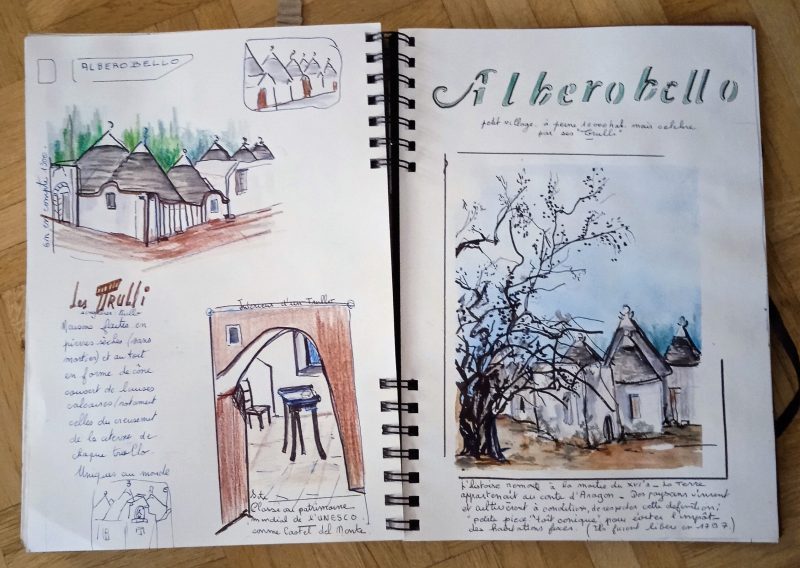 ALBEROBELLO
Les TRulli
singulier trullo
Maisons faites en
pierres sèches (sans
mortier) et au toit
en forme de cône
couvert de lauses
calcaires (notament
celles du creusement
de la citerne de
chaque trullo
Uniques au monde
Intérieur d'un Trullo
Site
Classé au patrimoine
mondial de l'UNESCO.
comme Castel del Monte.
Alberobello
petit village. à peine 10000 hab. mais célèbre
par ses "Trulli"
L'histoire remonte à la moitié du XVI's - La Terre
appartenait au comte d'Aragon - Des paysans vinrent
et cultivèrent à condition, de respecter cette definition;
"petite pièce "toit conique" pour éviter l'impôt
des habitations fixes. (Ils furent libérés en 1797.)